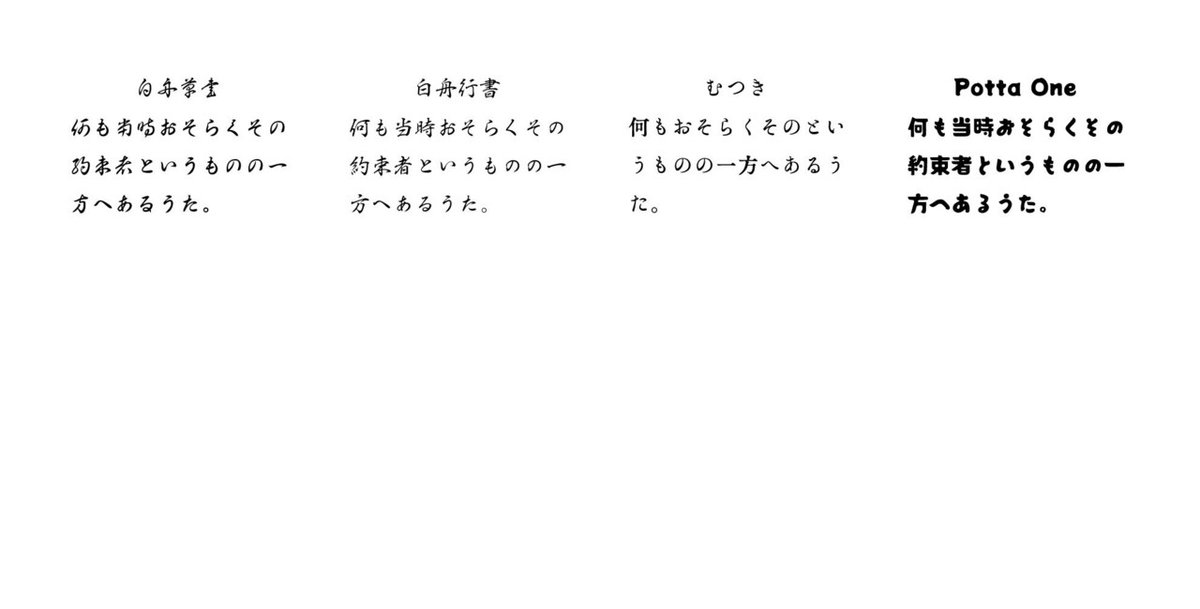 白舟草書
何も当時おそらくその
約束者というものの一
方へあるうた。
白舟行書
何も当時おそらくその
約束者というものの一
方へあるうた。
むつき
何もおそらくそのとい
うものの一方へあるう
た。
Potta One
何も当時おそらくその
約束者というものの一
方へあるうた。